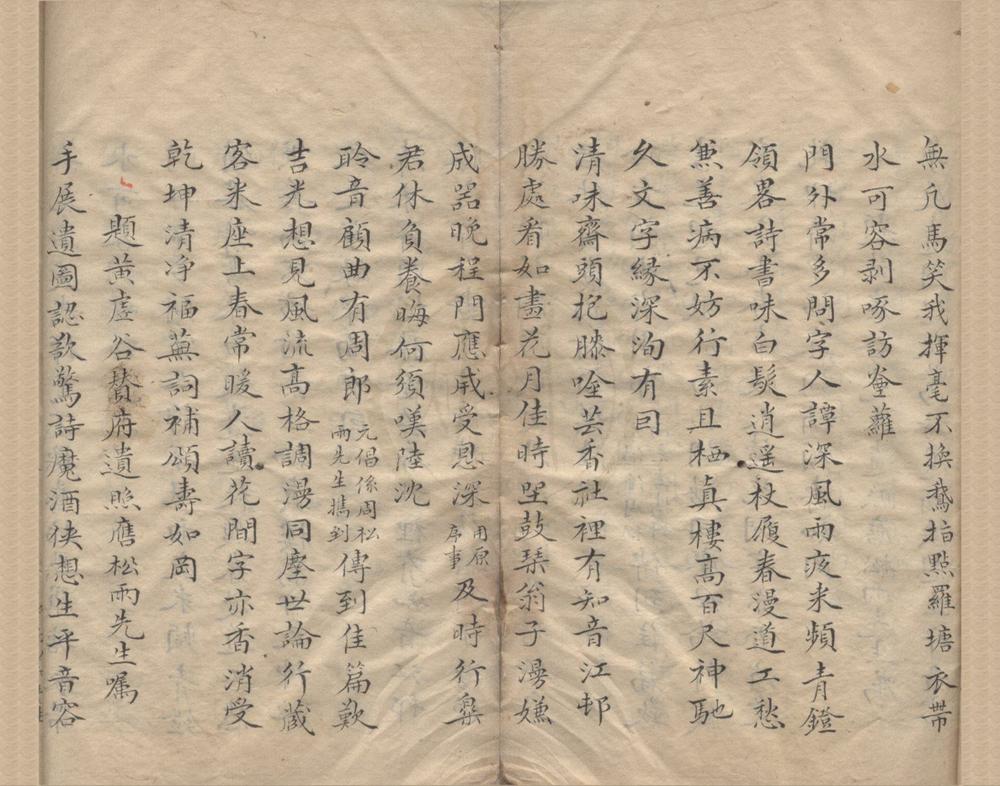 無凡馬笑我揮毫不換鵝指點羅塘衣帶
水可容剥啄訪菴蘿
門外常多問字人譚深風雨夜来頻青鐙
領畧詩書味白髮逍遥杖履春漫道工愁
兼善病不妨行素且栖真樓高百尺神馳
久文字縁深洵有因
清味齋頭抱膝唫芸香社裡有知音江邨
勝處看如畫花月佳時聖鼓琹翁子漫嫌
成器晚程門應感受恩深用原序事及時行樂
君休負養晦何須嘆陸沈
聆音顧曲有周郎元倡係周松雨先生攜到傳到佳篇歎
吉光想見風流髙格調漫同塵世論行藏
客来座上春常暖人讀花間字亦香消受
乾坤清浄福蕪詞補頌壽如岡
題黄虚谷贊府遺照應松雨先生嘱
手展遺圖認欲驚詩魔酒俠想生平音容